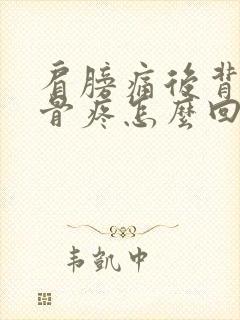 肩膀痛後背
骨疼怎麼回
韦凱中